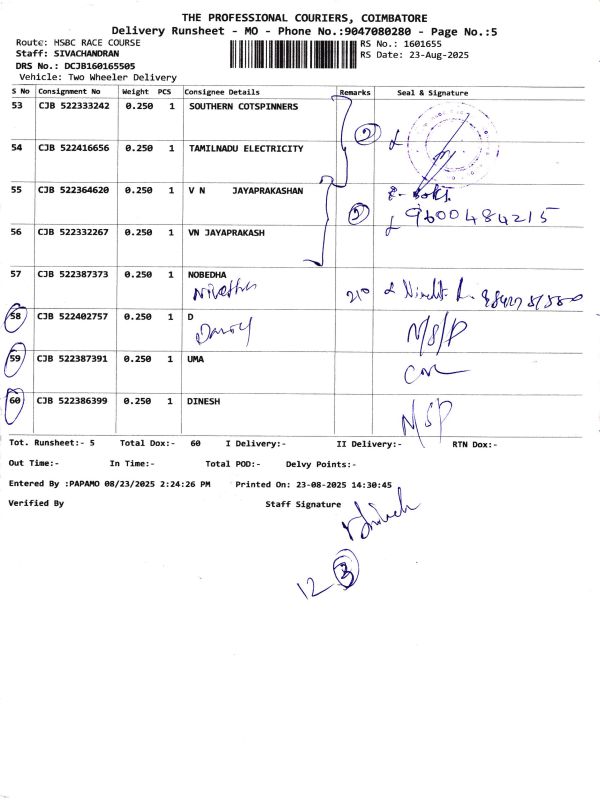 THE PROFESSIONAL COURIERS, COIMBATORE
Delivery Runsheet - MO - Phone No.:9047080280 - Page No.:5
Route: HSBC RACE COURSE RS No.: 1601655
Staff: SIVACHANDRAN RS Date: 23-Aug-2025
DRS No.: DCJB160165505
Vehicle: Two Wheeler Delivery
S No Consignment No Weight PCS Consignee Details Remarks Seal & Signature
53 CJB 522333242 0.250 1 SOUTHERN COTSPINNERS
54 CJB 522416656 0.250 1 TAMILNADU ELECTRICITY
55 CJB 522364620 0.250 1 V N JAYAPRAKASHAN
9600484215
56 CJB 522332267 0.250 1 VN JAYAPRAKASH
57 CJB 522387373 0.250 1 NOBEDHA
58 CJB 522402757 0.250 1 D
N/S/P
59 CJB 522387391 0.250 1 UMA
60 CJB 522386399 0.250 1 DINESH
N/SP
Tot. Runsheet:- 5 Total Dox:- 60 I Delivery:- II Delivery:- RTN Dox:-
Out Time:- In Time:- Total POD:- Delvy Points:-
Entered By :PAPAMO 08/23/2025 2:24:26 PM Printed On: 23-08-2025 14:30:45
Verified By Staff Signature
12 3